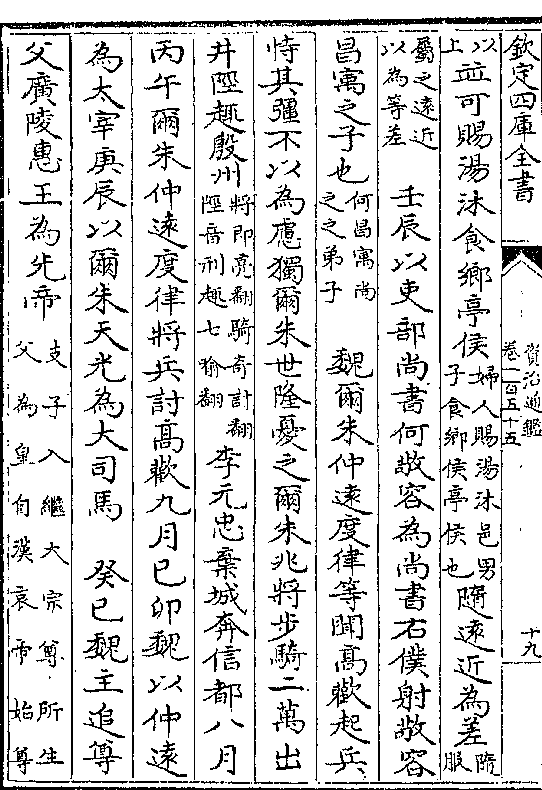 欽定四庫全書
資治通鑑
卷一百五十五
十九
以上並可賜湯沐食鄉亭侯婦人賜湯沐邑男子食鄉侯亭侯也隨遠近為差隨服
屬之遠近以為等差 壬辰以吏部尚書何敬容為尚書右僕射敬容
昌寓之子也何昌寓尚之之弟子 魏爾朱仲遠度律等聞高歡起兵
恃其彊不以為慮獨爾朱世隆憂之爾朱兆將步騎二萬出
井陘趣殷州將即亮翻騎奇計翻陘音刑趣七喻翻李元忠棄城奔信都八月
丙午爾朱仲遠度律將兵討高歡九月己卯魏以仲遠
為太宰庚辰以爾朱天光為大司馬 癸巳魏主追尊
父廣陵惠王為先帝支子入繼大宗尊所生父為皇自漢哀帝始尊